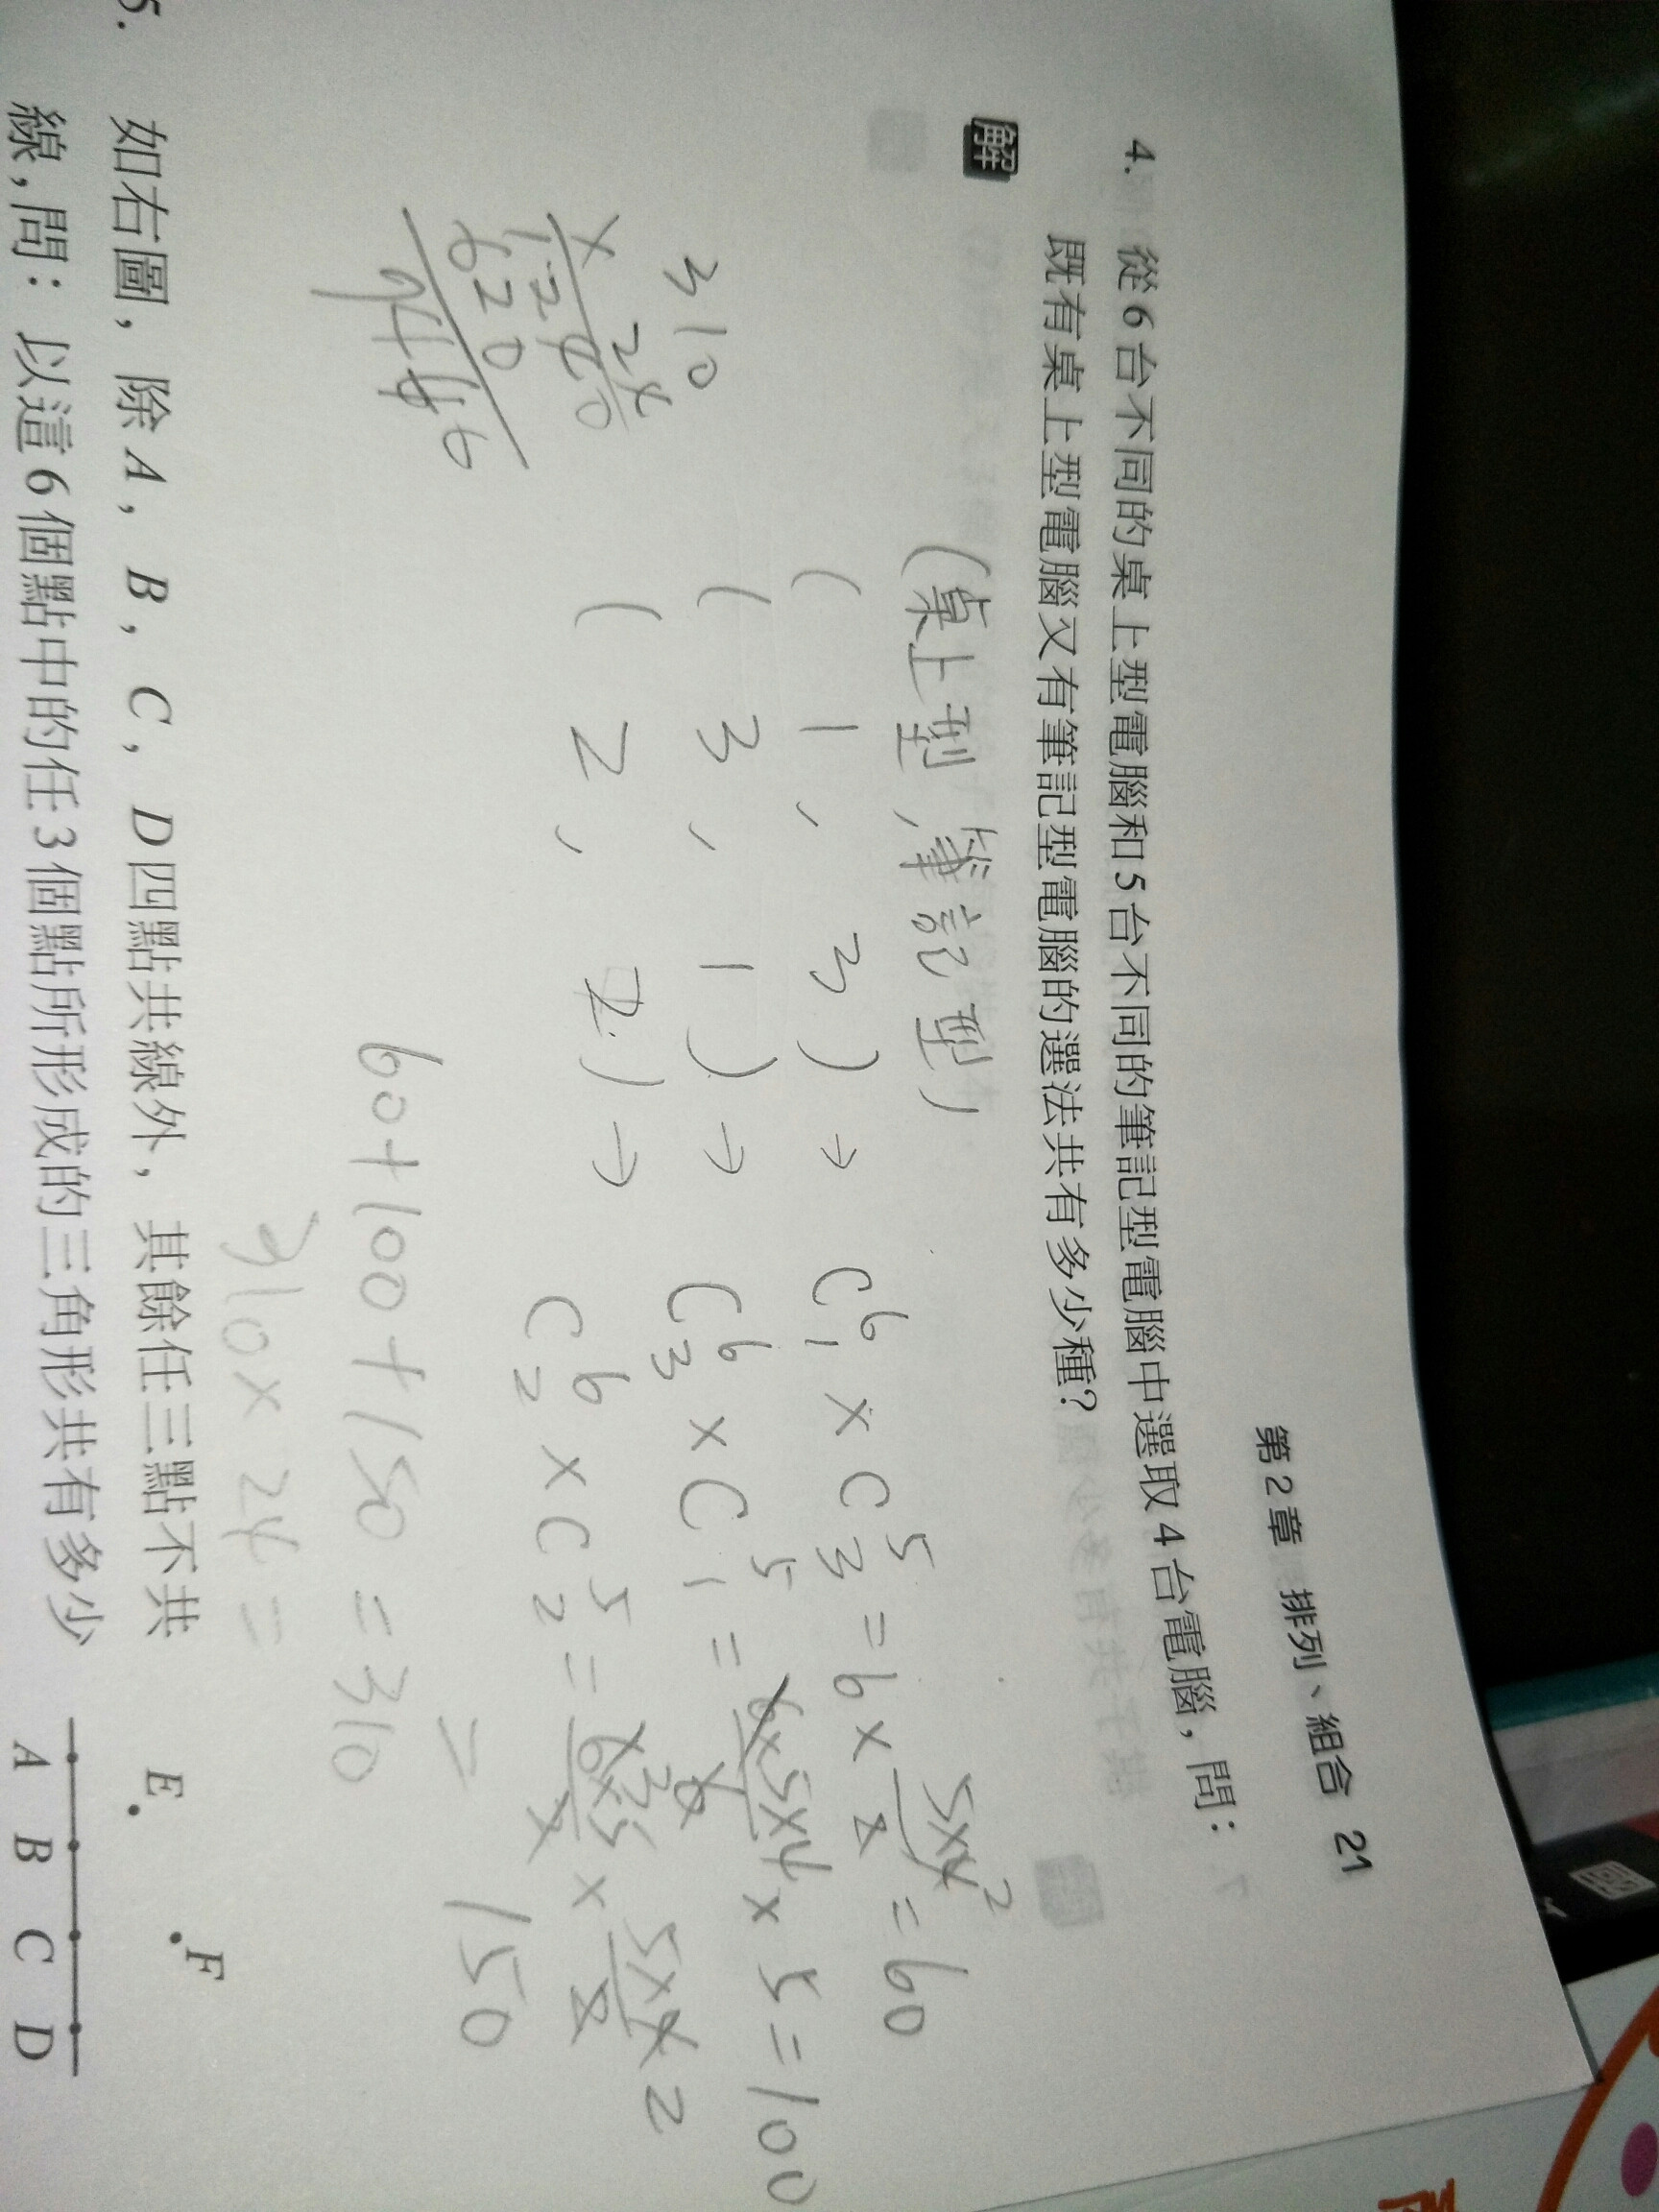 第2章 排列、組合 21
4. 從6台不同的桌上型電腦和5台不同的筆記型電腦中選取4台電腦,問:
既有桌上型電腦又有筆記型電腦的選法共有多少種?
解
(桌上型,筆記型)
( 1 , 3 ) → C⁶₁ × C⁵₃ = 6 × 5×4/2 = 60
( 3 , 1 ) → C⁶₃ × C⁵₁ = 6×5×4/6 × 5 = 100
( 2 , 2 ) → C⁶₂ × C⁵₂ = 6×5/2 × 5×4/2
= 150
60+100+150 = 310
310 × 24 =
310
× 24
1240
620
5. 如右圖,除A,B,C,D四點共線外,其餘任三點不共
線,問:以這6個點中的任3個點所形成的三角形共有多少
E F
A B C D